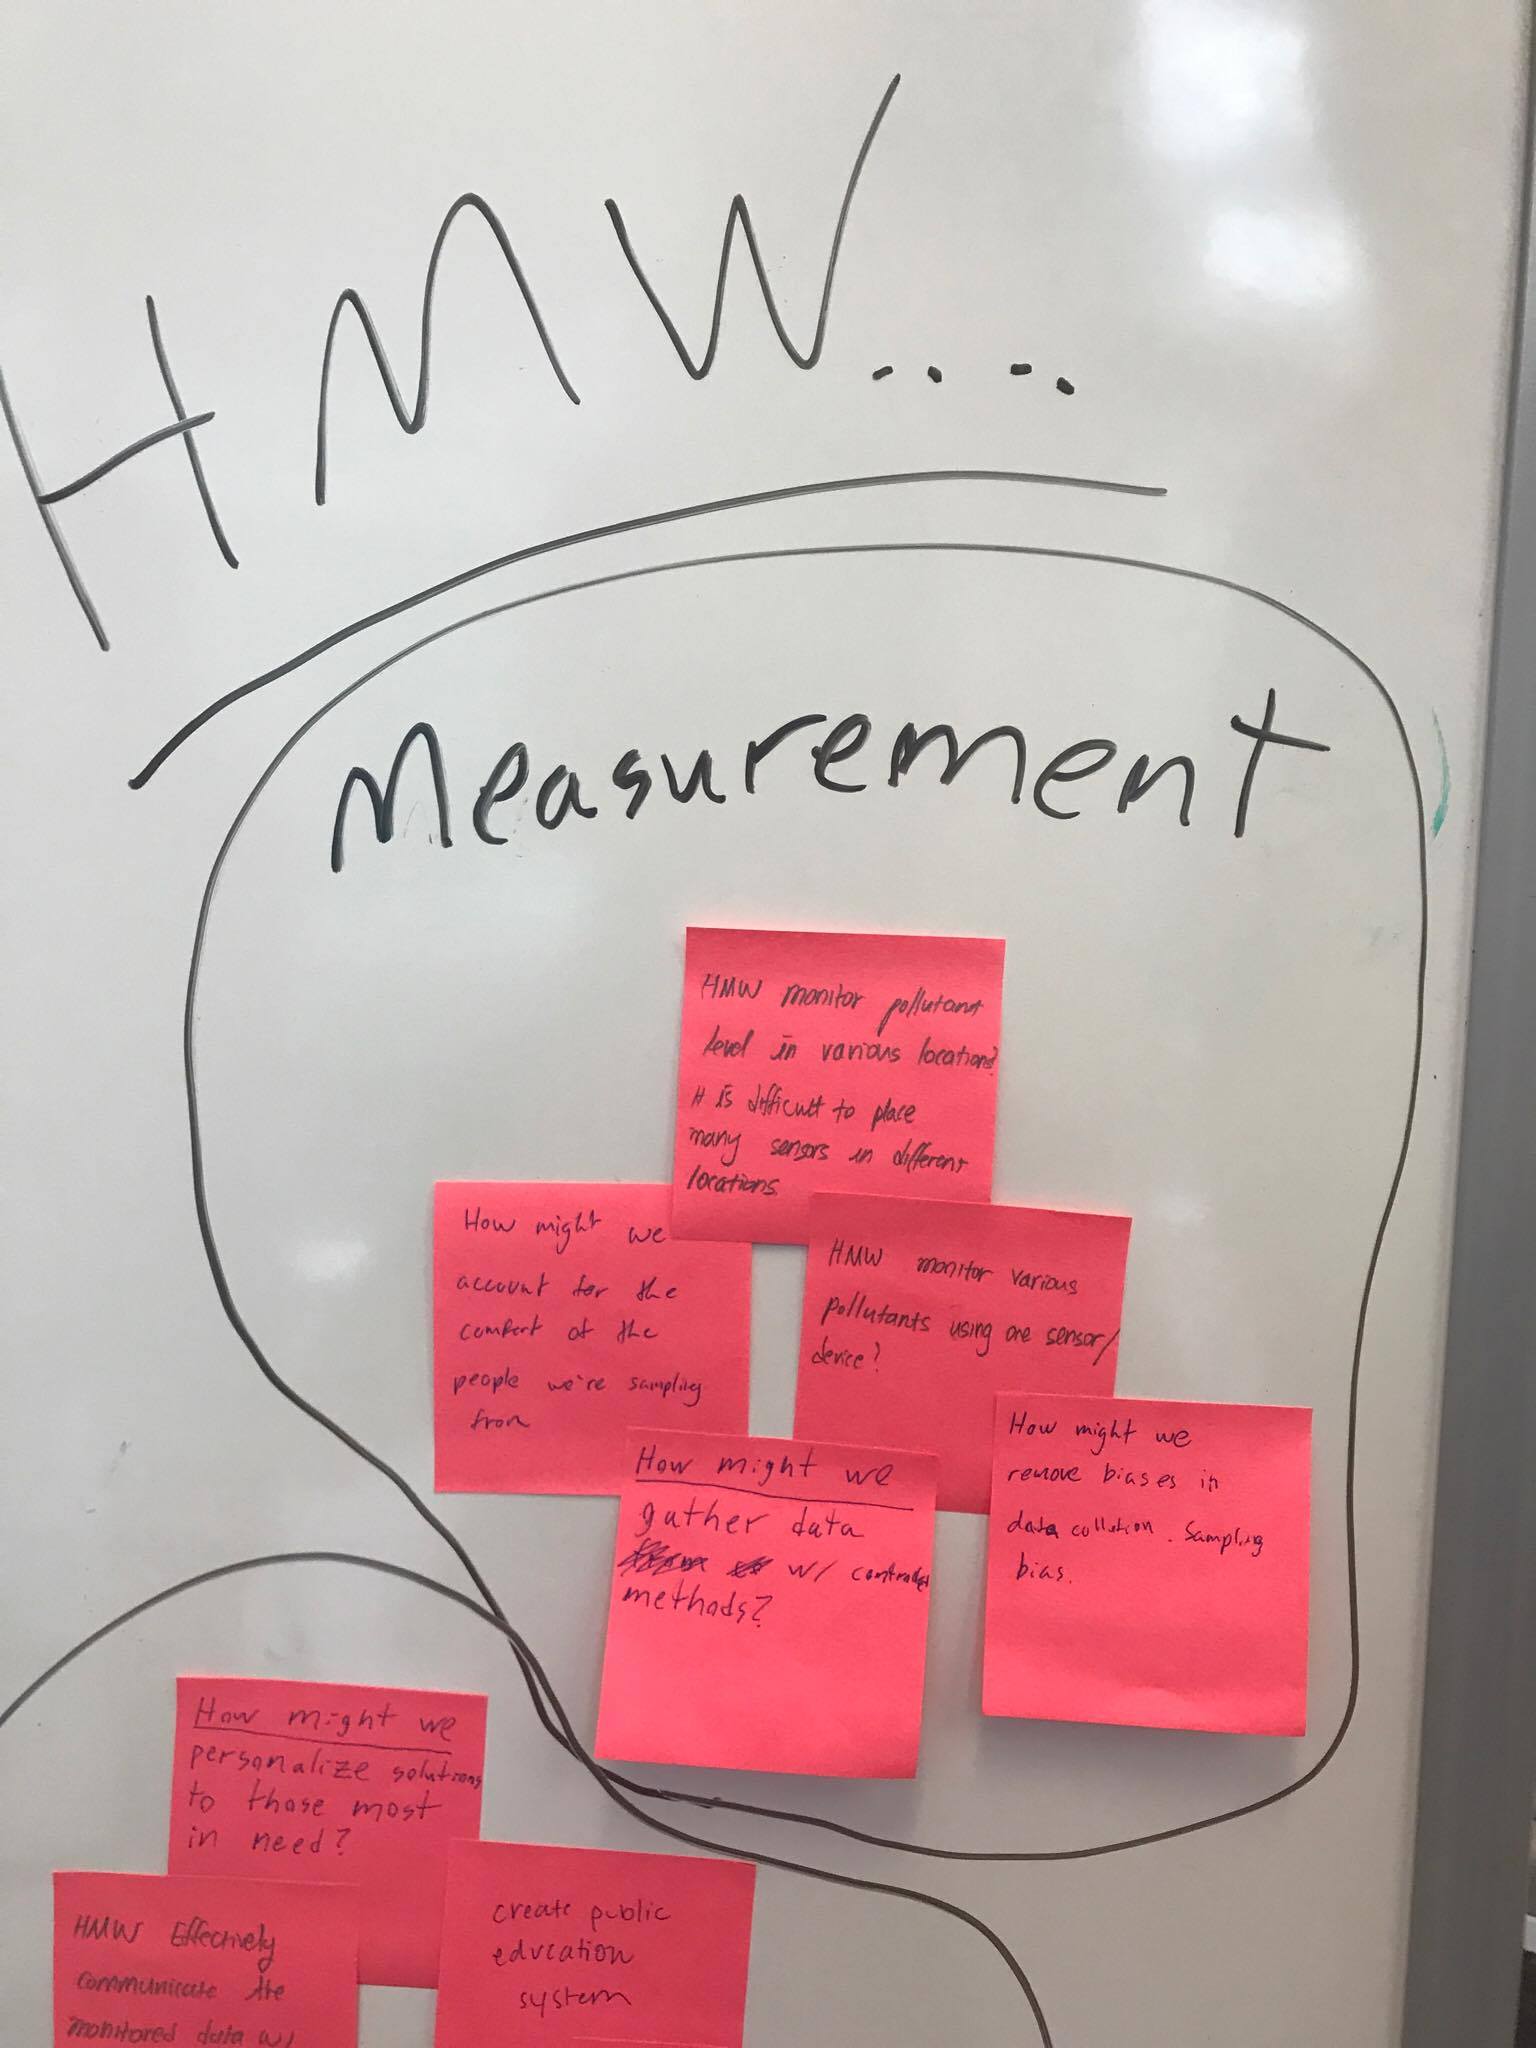 HMW....
Measurement
HMW monitor pollutant
level in various locations?
It is difficult to place
many sensors in different
locations
How might we
account for the
comfort of the
people we're sampling
from
HMW monitor various
pollutants using one sensor/
device?
How might we
gather data
w/
methods?
How might we
remove biases in
data collution. Sampling
bias.
How might we
personalize solutions
to those most
in need?
HMW Effectively
communicate the
monitored data w/
create public
education
system